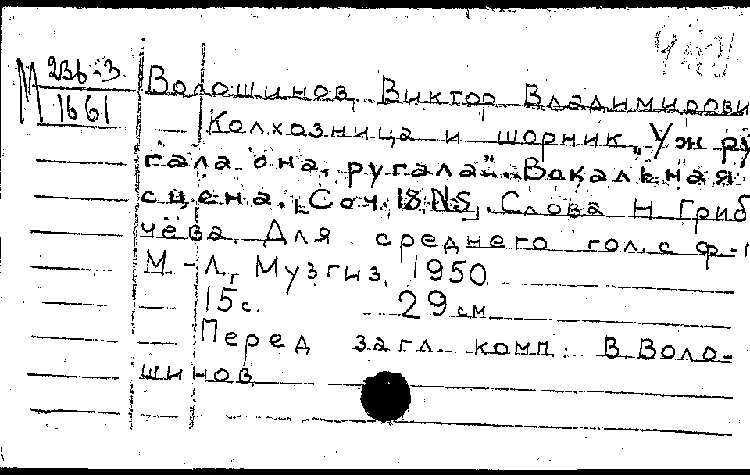 М 236-3
1661
Волошинов, Виктор Владимирови
Колхозница и шорник „Уж ру
гала она, ругала". Вокальная
сцена. Соч. 18 №5. Слова Н. Гриб
чёва. Для среднего гол. с ф-п
М.-Л., Музгиз, 1950
15 с. 29 см
Перед загл. комп.: В. Воло-
шинов